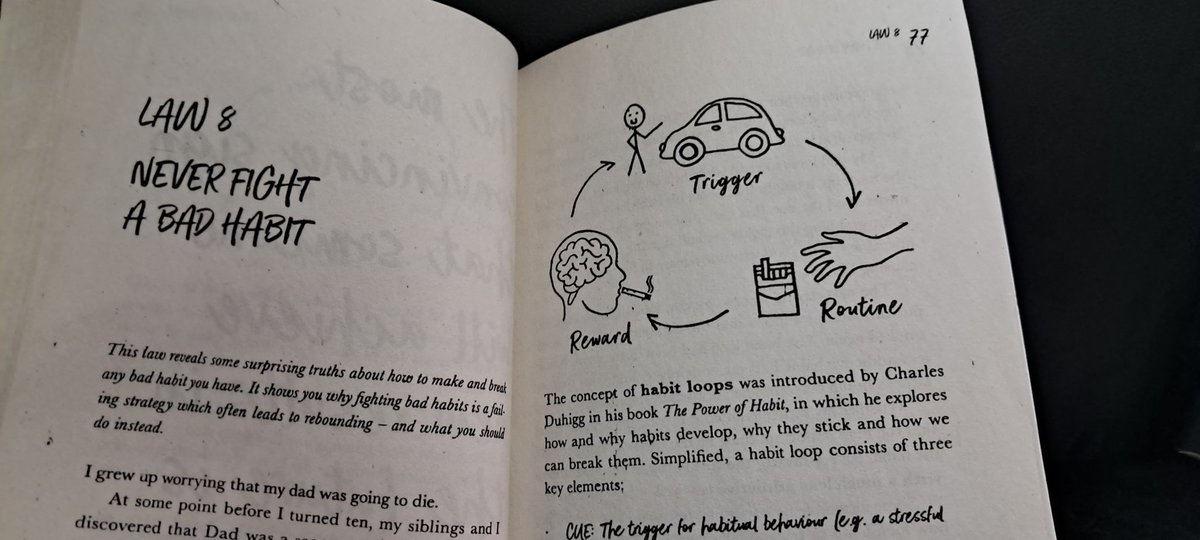 LAW 8
NEVER FIGHT
A BAD HABIT
This law reveals some surprising truths about how to make and break
any bad habit you have. It shows you why fighting bad habits is a fail-
ing strategy which often leads to rebounding – and what you should
do instead.
I grew up worrying that my dad was going to die.
At some point before I turned ten, my siblings and I
discovered that Dad was a
LAW 8 77
Trigger
Routine
Reward
The concept of habit loops was introduced by Charles
Duhigg in his book The Power of Habit, in which he explores
how and why habits develop, why they stick and how we
can break them. Simplified, a habit loop consists of three
key elements;
· CUE: The trigger for habitual behaviour (e.g. a stressful